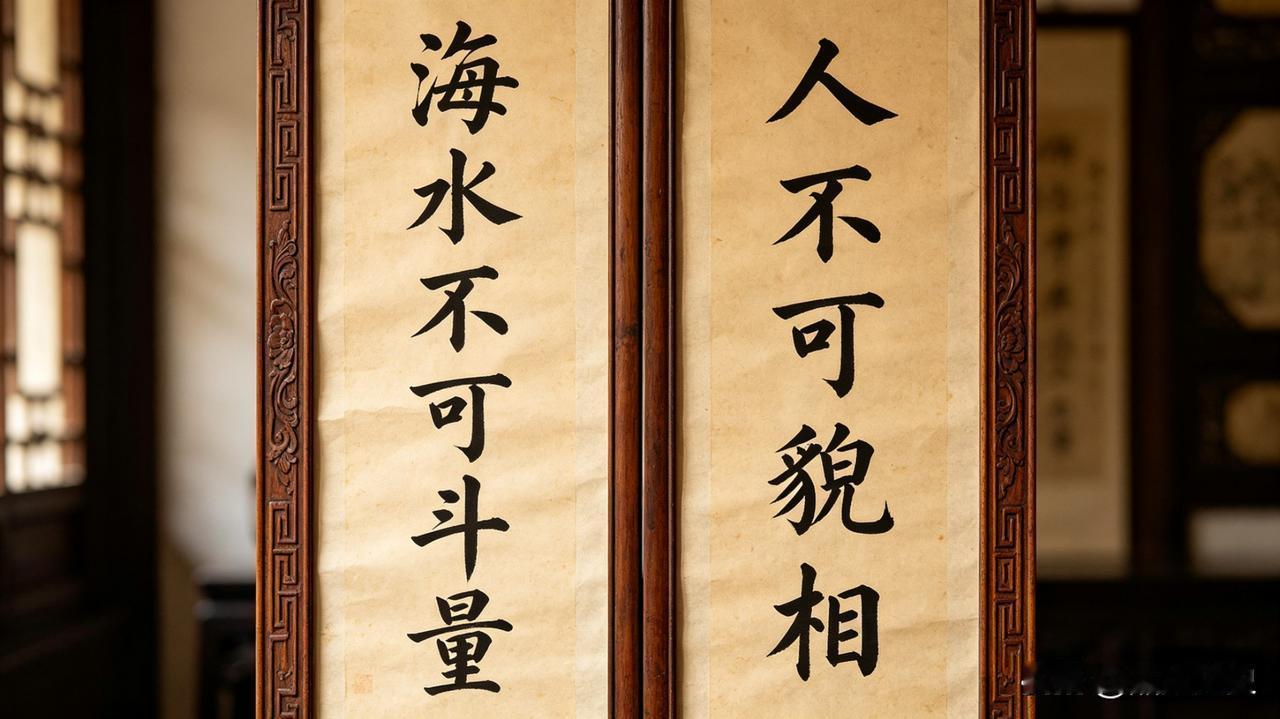 人不可貌相
海水不可斗量